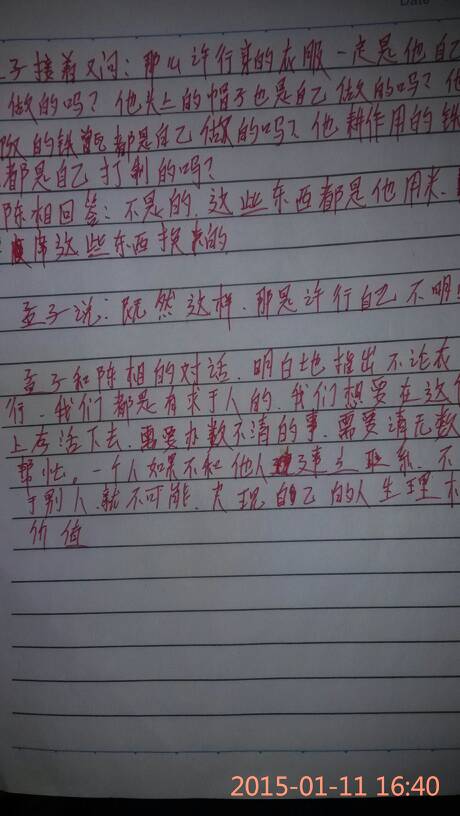 Date
子接着又问：那么许行穿的衣服一定是他自己
做的吗？他头上的帽子也是自己做的吗？他
饭的铁甑都是自己做的吗？他耕作用的铁
都是自己打制的吗？
陈相回答：不是的，这些东西都是他用米、
这些东西换来的
孟子说：既然这样，那是许行自己不明
孟子和陈相的对话，明白地指出不论衣
行，我们都是有求于人的，我们想要在这个
上存活下去，需要办数不清的事，需要请无数
帮忙，一个人如果不和他人建立联系，不
于别人，就不可能，实现自己的人生理想
价值
2015-01-11 16:40